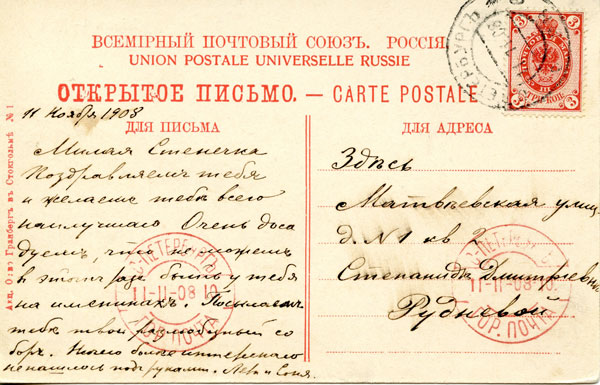 ВСЕМІРНЫЙ ПОЧТОВЫЙ СОЮЗЪ. РОССІЯ
UNION POSTALE UNIVERSELLE RUSSIE
ОТКРЫТОЕ ПИСЬМО. — CARTE POSTALE
11 Ноября 1908
ДЛЯ ПИСЬМА
Милая Стенечка
Поздравляемъ тебя
и желаемъ тебѣ всего
наилучшаго Очень доса
дуемъ, что не можемъ
въ этотъ разъ быть у тебя
на именинахъ. Посылаемъ
тебѣ твой разлюбимый со
боръ. Ничего более интереснаго
не нашлось подъ руками. Лева и Соня.
ДЛЯ АДРЕСА
Здѣсь
Матвѣевская улица
д. N 1 кв
Степанидѣ Дмитріевнѣ
Рудневой
Акц. О-во Гранбергъ въ Стокгольмѣ № 1
С-ПЕТЕРБУРГЪ
11-11-08 10
ГОР. ПОЧТА
С-ПЕТЕРБУРГЪ
11-11-08 10
ГОР. ПОЧТА
3 3
3 3